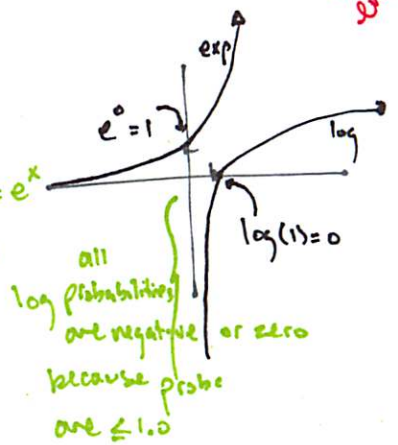 exp
e⁰ = 1
log
= eˣ
log(1) = 0
all
log probabilities
are negative or zero
because probs
are ≤ 1.0